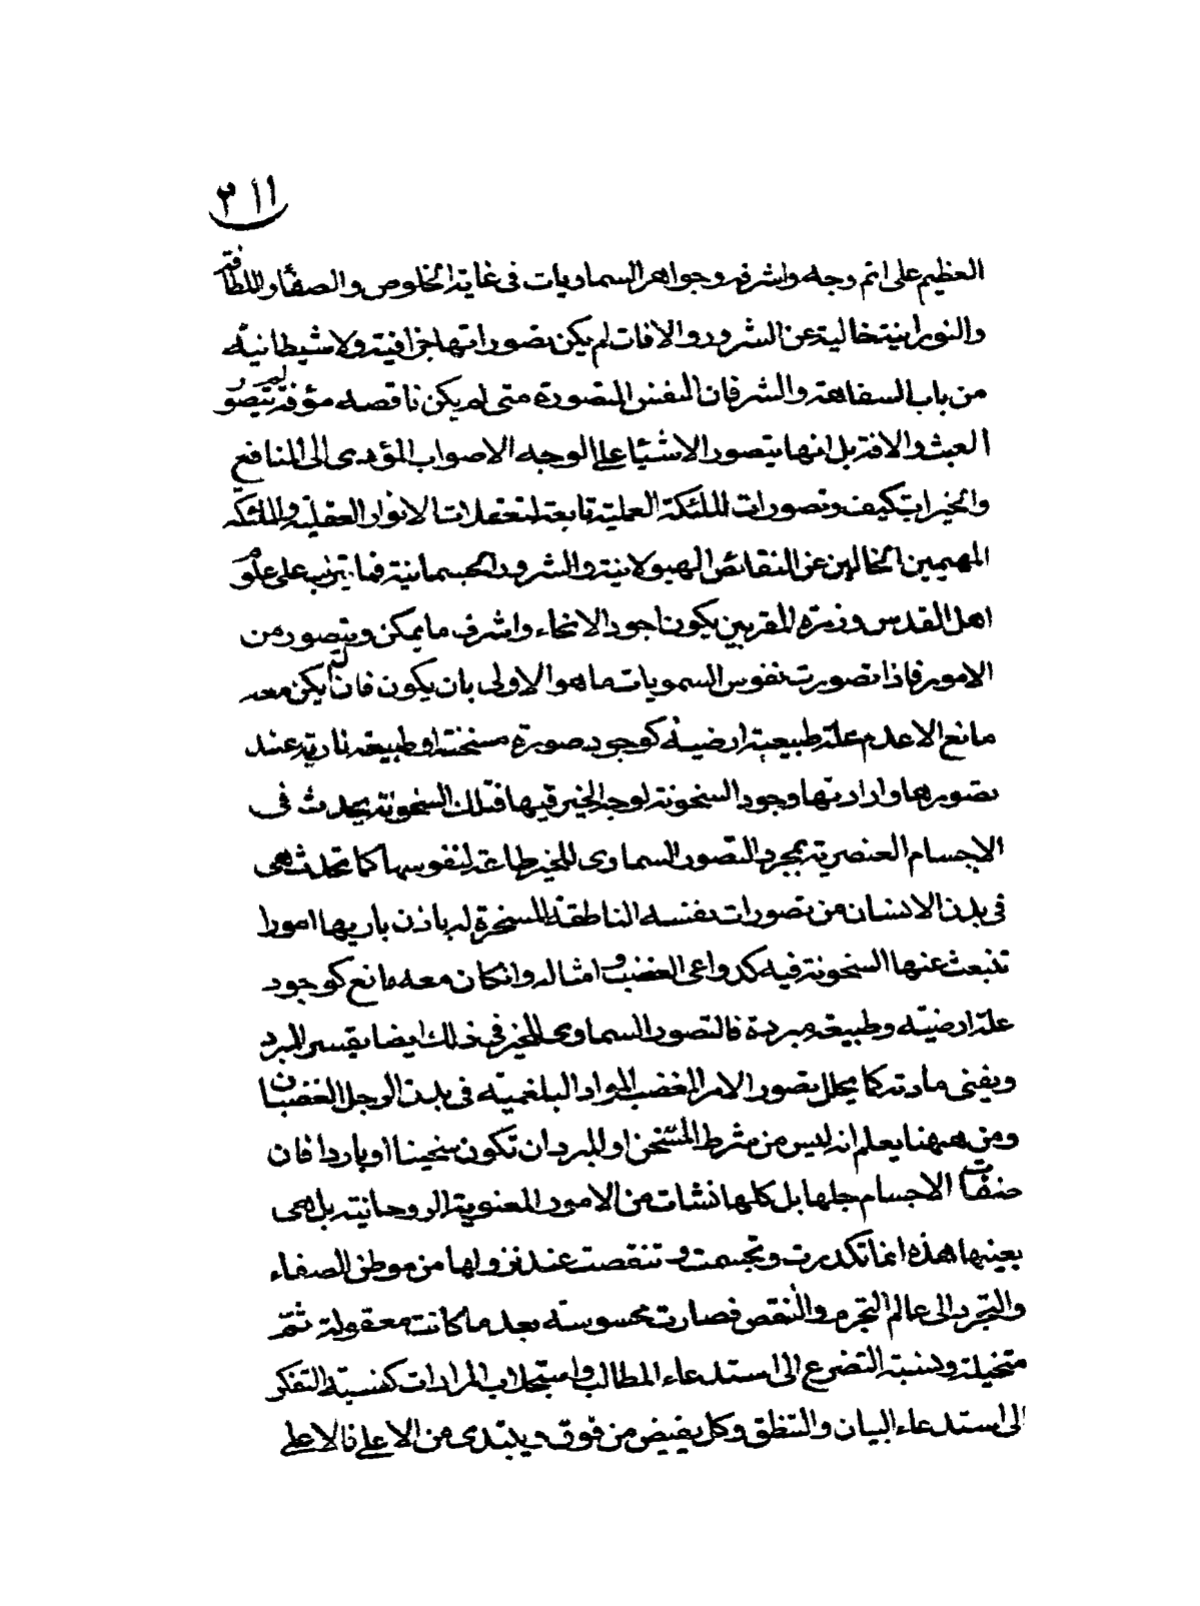 ٢١١
العظيم على اتم وجه واشرفه وجواهر السماويات فى غاية الخلوص والصفا واللطافة
والنورانية خالية عن الشرور والافات لم يكن تصوراتها جزافية ولا شيطانية
من باب السفاهة والشر فان النفس المتصورة متى لم يكن ناقصه مؤفة لم يتصور
العبث والافة بل انها يتصور الاشيا على الوجه الاصواب المؤدى الى المنافع
والخيرات كيف وتصورات الملئكة العملية تابعة لتعقلات الانوار العقلية والملئكة
المهيمين الخالين عن النقائص الهيولانية والشرور الجسمانية فما يترتب على علوم
اهل القدس وزمرة المقربين يكون اجود الانحاء واشرف ما يمكن ويتصور من
الامور فاذا تصورت نفوس السمويات ما هو الاولى بان يكون فان لم يكن معه
مانع الا عدم علة طبيعية ارضية كوجود صورة مسخنة او طبيعة نارية عند
تصورها وارادتها وجود السخونة لوجه الخير فيها فتلك السخونة يحدث فى
الاجسام العنصرية بمجرد التصور السماوى للخير طاعة لنفوسها كما تحدث هى
فى بدن الانسان من تصورات نفسه الناطقة المسخرة له باذن باريها امورا
تنبعث عنها السخونة فيه كدواعى الغضب وامثاله وان كان معه مانع كوجود
علة ارضية وطبيعة مبردة فالتصور السماوى للخير فى ذلك ايضا يقسر المبرد
ويفنى مادته كما يحلل تصور الامر المغضب المواد البلغمية فى بدن الرجل الغضبان
ومن ههنا يعلم انه ليس من شرط المسخن او المبرد ان تكون سخينا او باردا فان
صفات الاجسام جلها بل كلها نشات من الامور المعنوية الروحانية بل هى
بعينها هذه انما تكدرت وتجسمت وتنقصت عند نزولها من موطن الصفاء
والتجرد الى عالم التجرم والنقص فصارت محسوسة بعد ما كانت معقولة ثم
متخيلة ونسبة التضرع الى استدعاء المطالب واستجلاب المرادات كنسبة التفكر
الى استدعاء البيان والتنطق وكل يفيض من فوق ويبتدى من الاعلى فالاعلى